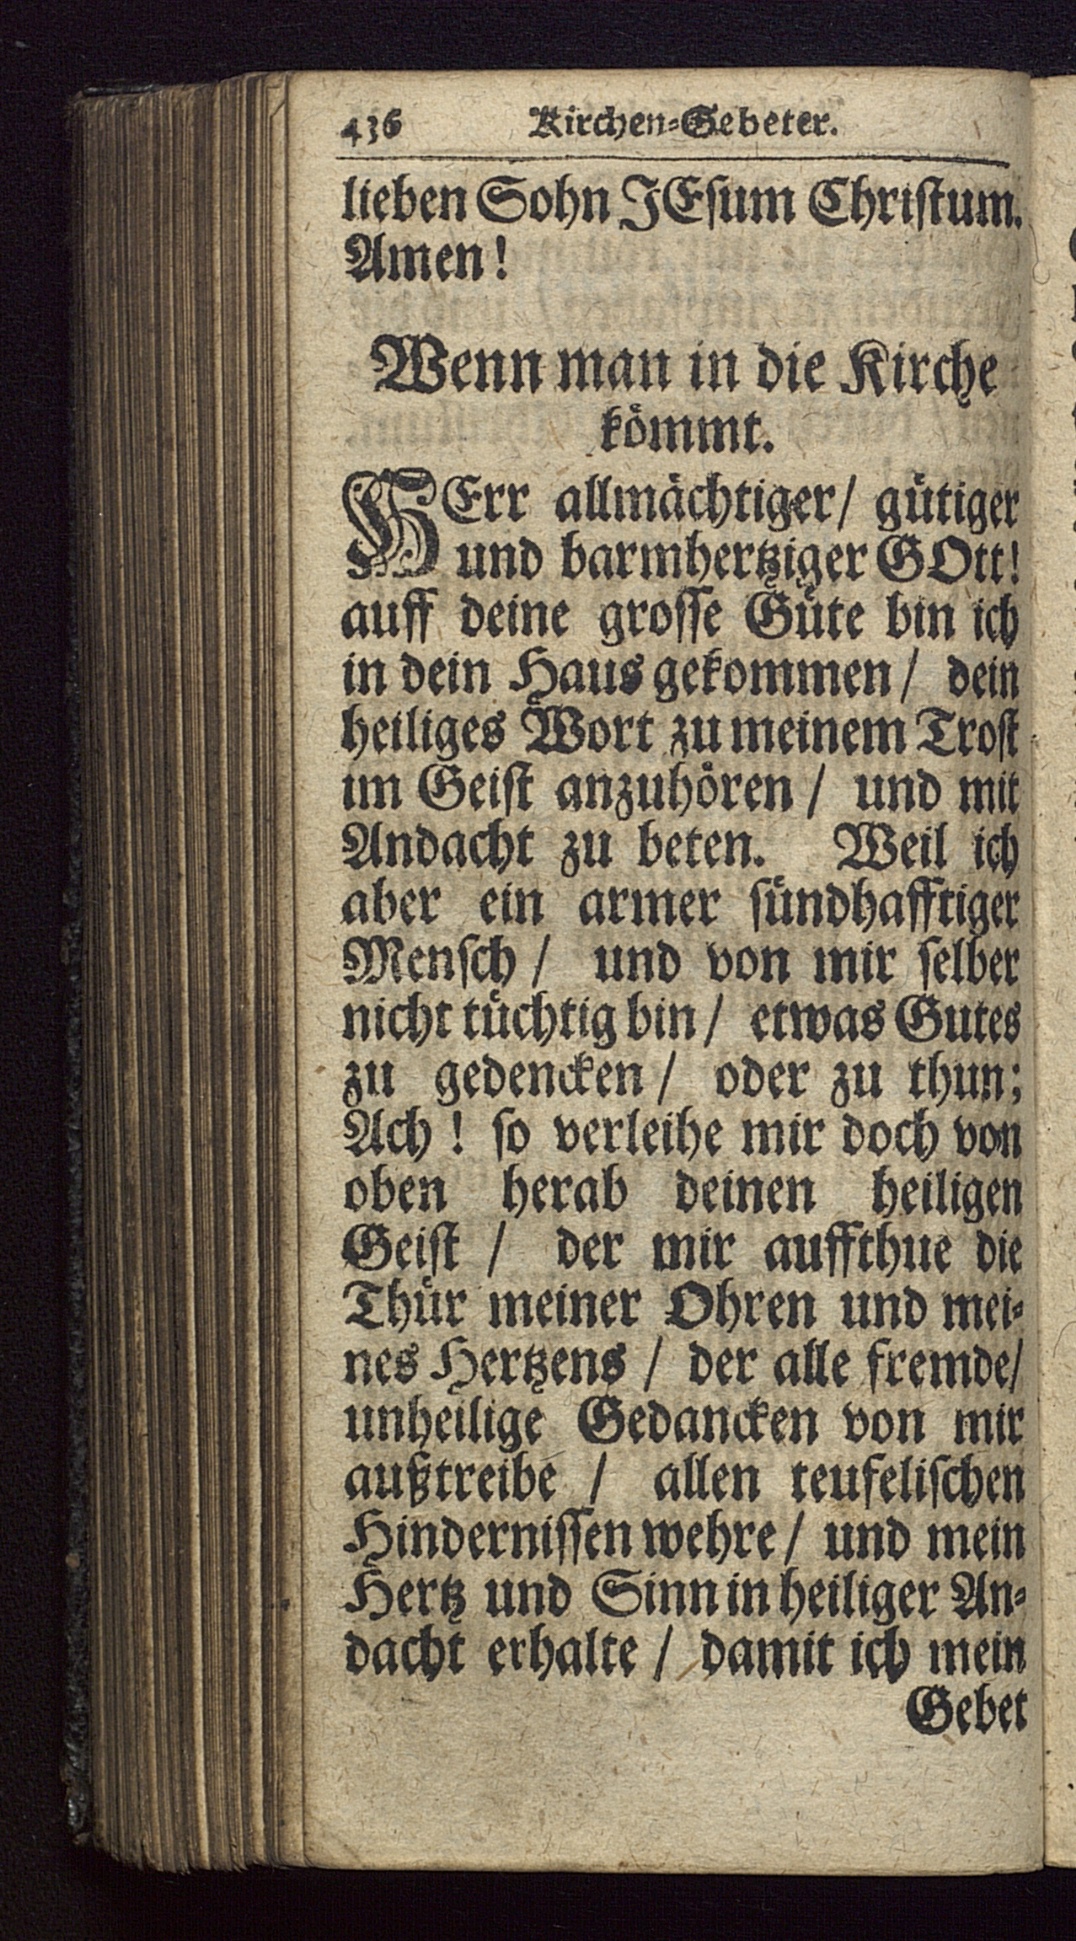 436 Kirchen-Gebeter.
lieben Sohn JEsum Christum.
Amen!
Wenn man in die Kirche
kömmt.
HErr allmächtiger/ gütiger
und barmhertziger GOtt!
auff deine grosse Güte bin ich
in dein Haus gekommen/ dein
heiliges Wort zu meinem Trost
im Geist anzuhören/ und mit
Andacht zu beten. Weil ich
aber ein armer sündhafftiger
Mensch/ und von mir selber
nicht tüchtig bin/ etwas Gutes
zu gedencken/ oder zu thun;
Ach! so verleihe mir doch von
oben herab deinen heiligen
Geist/ der mir auffthue die
Thür meiner Ohren und mei-
nes Hertzens/ der alle fremde/
unheilige Gedancken von mir
außtreibe/ allen teufelischen
Hindernissen wehre/ und mein
Hertz und Sinn in heiliger An-
dacht erhalte/ damit ich mein
Gebet